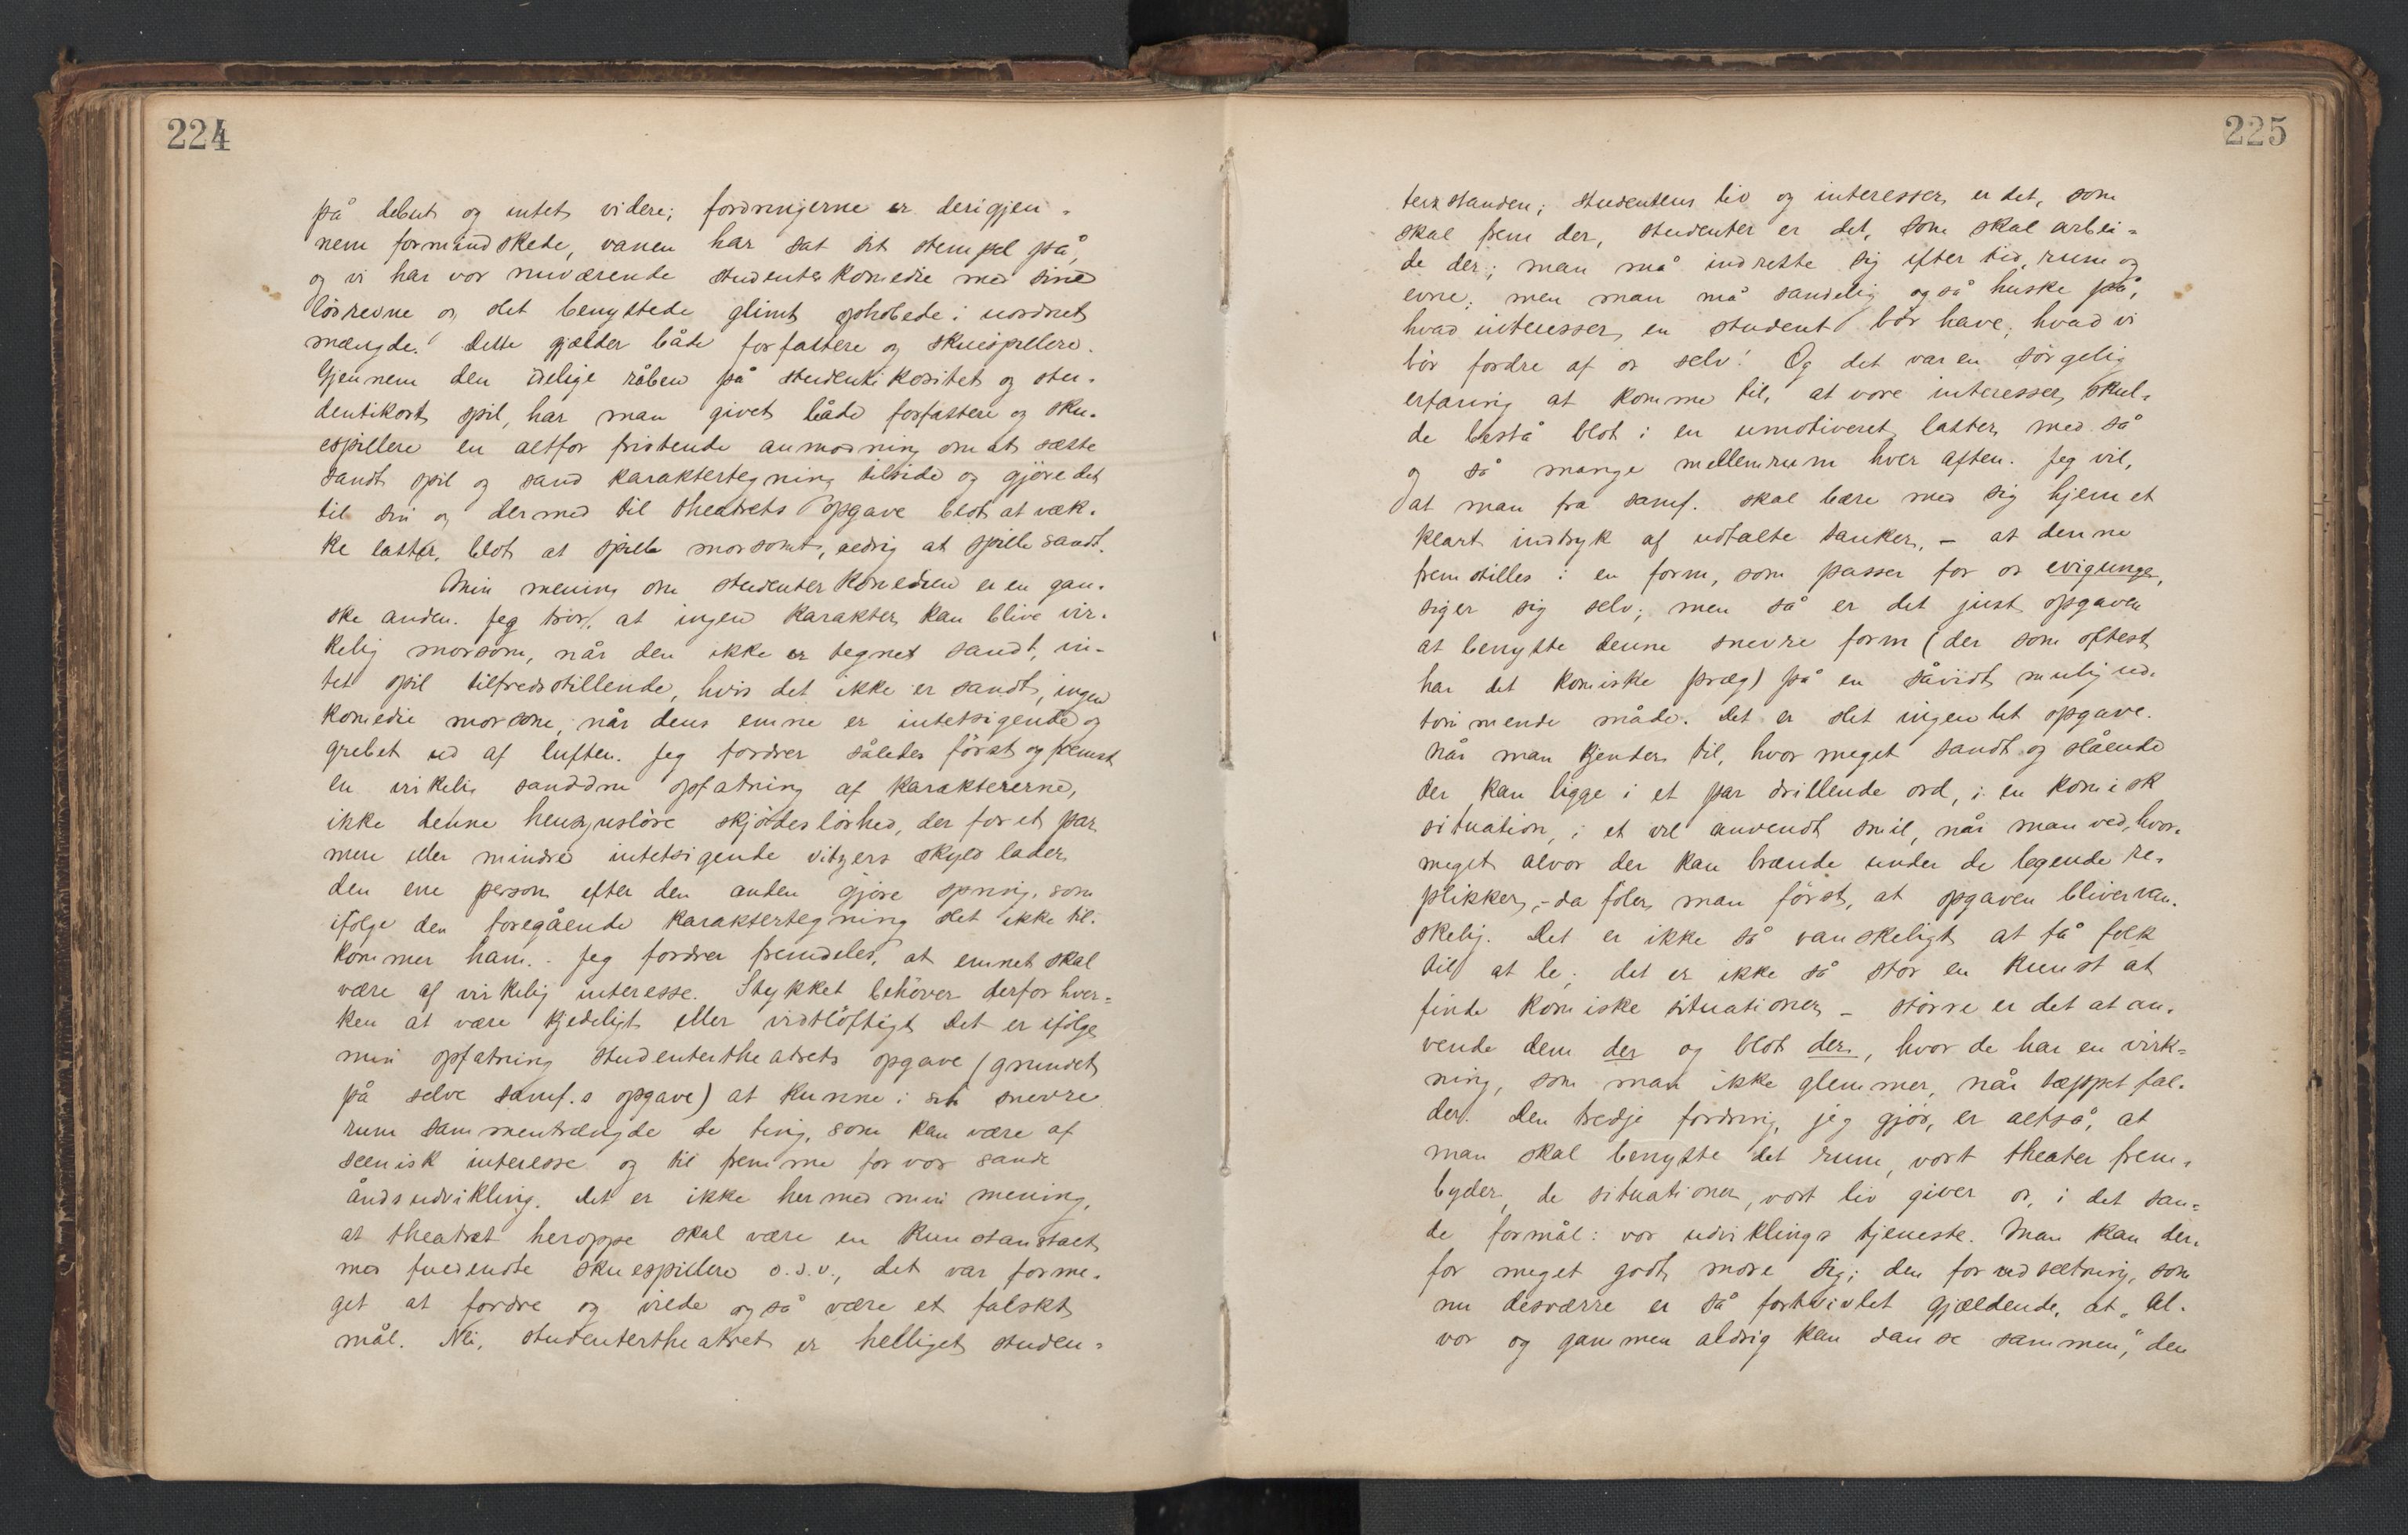 224
på debut og intet videre; fordringerne er derigjen-
nem formindskede, vanen har sat sit stempel på,
og vi har vor nuværende studenterkomedie med sine
løsrevne og slet benyttede glimt ophobede i uordnet
mængde. Dette gjælder både forfattere og skuespillere.
Gjennem den idelige råben på studentikositet og stu-
dentikost spil, har man givet både forfattere og sku-
espillere en altfor fristende anmodning om at sætte
sandt spil og sand karaktertegning tilside og gjøre det
til sin og dermed til theatrets opgave blot at væk-
ke latter, blot at spille morsomt, aldrig at spille sandt.
Min mening om studenterkomedien er en gan-
ske anden. Jeg tror, at ingen karakter kan blive vir-
kelig morsom, når den ikke er tegnet sandt, in-
tet spil tilfredsstillende, hvis det ikke er sandt, ingen
komedie morsom, når dens emne er intetsigende og
grebet ud af luften. Jeg fordrer således først og fremst
en virkelig sanddru opfatning af karaktererne,
ikke denne hensynsløse skjødesløshed, der for et par
mere eller mindre intetsigende vitzers skyld lader
den ene person efter den anden gjøre spring, som
ifølge den foregående karaktertegning slet ikke til-
kommer ham. - Jeg fordrer fremdeles, at emnet skal
være af virkelig interesse. Stykket behøver derfor hver-
ken at være kjedeligt eller vidtløftigt. Det er ifølge
min opfatning studentertheatrets opgave (grundet
på selve samf.s opgave) at kunne i sit snevre
rum sammentrængde de ting, som kan være af
scenisk interesse og til fremme for vor sande
åndsudvikling. Det er ikke hermed min mening,
at theatret heroppe skal være en kunstanstalt
med fuldendte skuespillere o.s.v., det var forme-
get at fordre og vilde også være et falskt
mål. Nei, studentertheatret er helliget studen-
225
terstanden; studentens liv og interesser er det, som
skal frem der, studenter er det, som skal arbei-
de der; man må indrette sig efter tid, rum og
evne; men man må sandelig også huske på,
hvad interesser en student bør have, hvad vi
bør fordre af os selv! Og det var en sørgelig
erfaring at komme til, at vore interesser skul-
de bestå blot i en umotiveret latter med så
og så mange mellemrum hver aften. Jeg vil,
at man fra samf. skal bære med sig hjem et
klart indtryk af udtalte tanker, - at denne
fremstilles i en form, som passer for os evigunge,
siger sig selv; men så er det just opgaven
at benytte denne snevre form (der som oftest
har det komiske præg) på en såvidt mulig ud-
tømmende måde. Det er slet ingen let opgave.
Når man kjender til, hvor meget sandt og slående
der kan ligge i et par drillende ord, i en komisk
situation, i et vel anvendt smil, når man ved, hvor-
meget alvor der kan brænde under de legende re-
plikker, - da føler man først, at opgaven bliver van-
skelig. Det er ikke så vanskeligt at få folk
til at le; det er ikke så stor en kunst at
finde komiske situationer - større er det at an-
vende dem der og blot der, hvor de har en virk-
ning, som man ikke glemmer, når tæppet fal-
der. Den tredje fordring, jeg gjør, er altså, at
man skal benytte det rum, vort theater frem-
byder, de situationer, vort liv giver os, i det san-
de formål: vor udviklings tjeneste. Man kan der-
for meget godt more sig; den forudsætning, som
nu desværre er så fortvivlet gjældende, at „al-
vor og gammen aldrig kan danse sammen," den